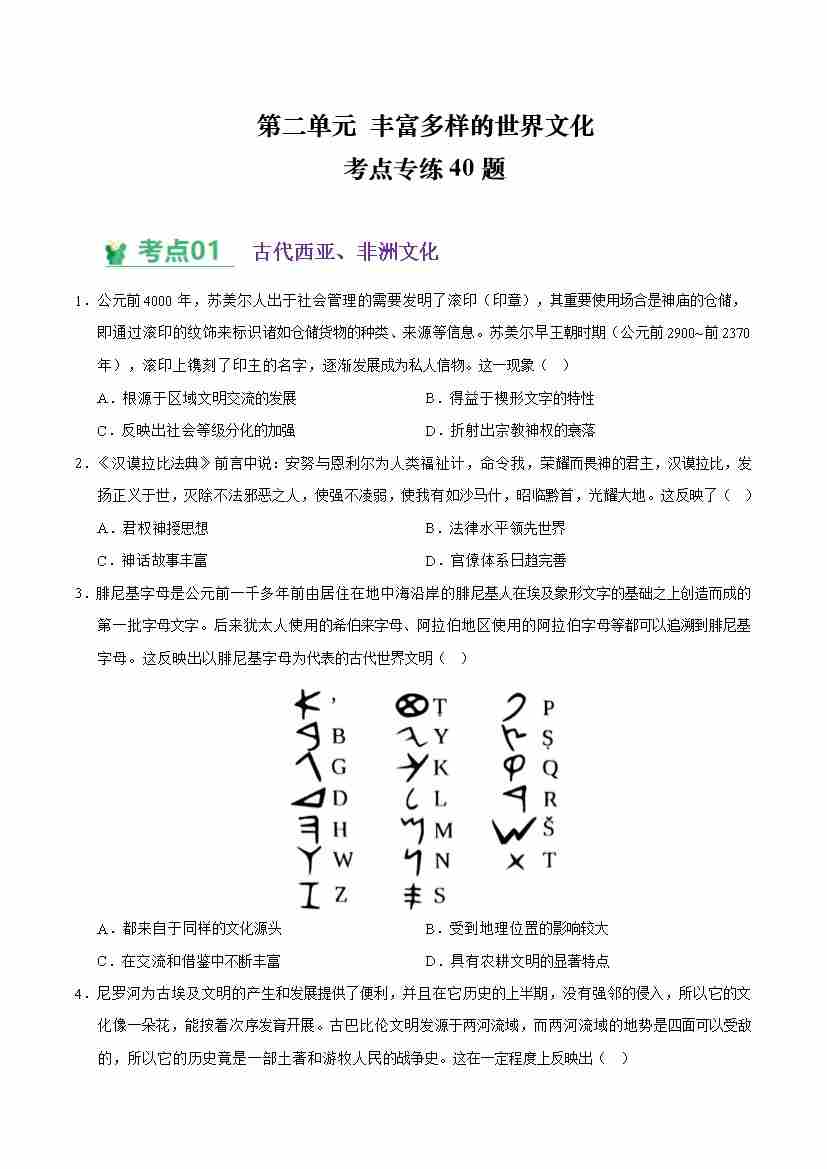 第二单元 丰富多样的世界文化
考点专练 40 题
考点01 古代西亚、非洲文化
1．公元前 4000 年，苏美尔人出于社会管理的需要发明了滚印（印章），其重要使用场合是神庙的仓储，
即通过滚印的纹饰来标识诸如仓储货物的种类、来源等信息。苏美尔早王朝时期（公元前 2900~前 2370
年），滚印上镌刻了印主的名字，逐渐发展成为私人信物。这一现象（ ）
A．根源于区域文明交流的发展 B．得益于楔形文字的特性
C．反映出社会等级分化的加强 D．折射出宗教神权的衰落
2．《汉谟拉比法典》前言中说：安努与恩利尔为人类福祉计，命令我，荣耀而畏神的君主，汉谟拉比，发
扬正义于世，灭除不法邪恶之人，使强不凌弱，使我有如沙马什，昭临黔首，光耀大地。这反映了（ ）
A．君权神授思想 B．法律水平领先世界
C．神话故事丰富 D．官僚体系日趋完善
3．腓尼基字母是公元前一千多年前由居住在地中海沿岸的腓尼基人在埃及象形文字的基础之上创造而成的
第一批字母文字。后来犹太人使用的希伯来字母、阿拉伯地区使用的阿拉伯字母等都可以追溯到腓尼基
字母。这反映出以腓尼基字母为代表的古代世界文明（ ）
𐤀 ’ 𐤈 Ṭ 𐤐 P
𐤁 B 𐤉 Y 𐤑 Ṣ
𐤂 G 𐤊 K 𐤒 Q
𐤃 D 𐤋 L 𐤓 R
𐤄 H 𐤌 M 𐤔 Š
𐤅 W 𐤍 N 𐤕 T
𐤆 Z 𐤎 S
A．都来自于同样的文化源头 B．受到地理位置的影响较大
C．在交流和借鉴中不断丰富 D．具有农耕文明的显著特点
4．尼罗河为古埃及文明的产生和发展提供了便利，并且在它历史的上半期，没有强邻的侵入，所以它的文
化像一朵花，能按着次序发育开展。古巴比伦文明发源于两河流域，而两河流域的地势是四面可以受敌
的，所以它的历史竟是一部土著和游牧人民的战争史。这在一定程度上反映出（ ）